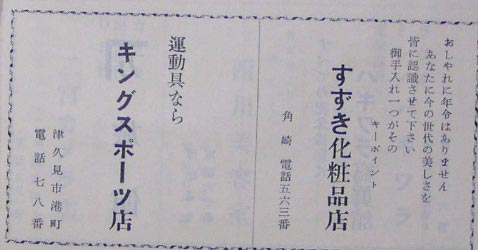 おしゃれに年令はありません
あなたに今の世代の美しさを
皆に認識させて下さい
御手入れ一つがその
キーポイント
すずき化粧品店
角崎 電話五六三番
運動具なら
キングスポーツ店
津久見市港町
電話七八番